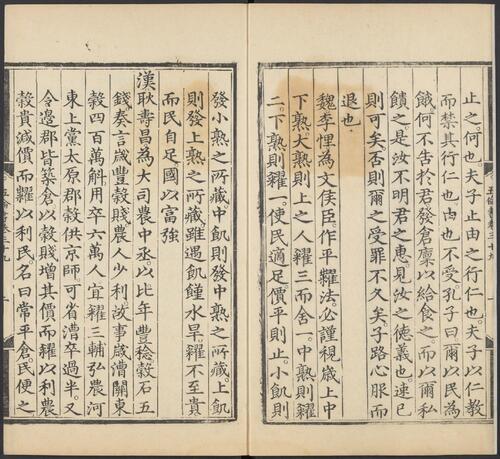 止之。何也。夫子止由之行仁也。夫子以仁教
而禁其行仁也。由也不受。孔子曰爾以民為
餓何不告於君發倉廩以給食之。而以爾私
饋之。是汝不明君之惠見汝之德義也。速已
則可矣否則爾之受罪不久矣。子路心服而
退也。
魏李悝為文侯臣。作平糴法。必謹視歲上中
下熟。大熟則上之人糴三而舍一。中熟則糴
二。下熟則糴一。使民適足價平則止。小飢則
發小熟之所藏中飢則發中熟之所藏。上飢
則發上熟之所藏雖遇飢饉水旱。糴不至貴
而民自足國以富強
漢耿壽昌為大司農中丞。以比年豐稔穀石五
錢。奏言歲豐穀賤農人少利故事歲漕關東
穀四百萬斛。用卒六萬人宜糴三輔弘農河
東上黨太原郡穀供京師。可省漕卒過半。又
令邊郡皆築倉以穀賤增其價而糴以利農
穀貴減價而糶以利民名曰常平倉。民便之
五倫書卷三十九